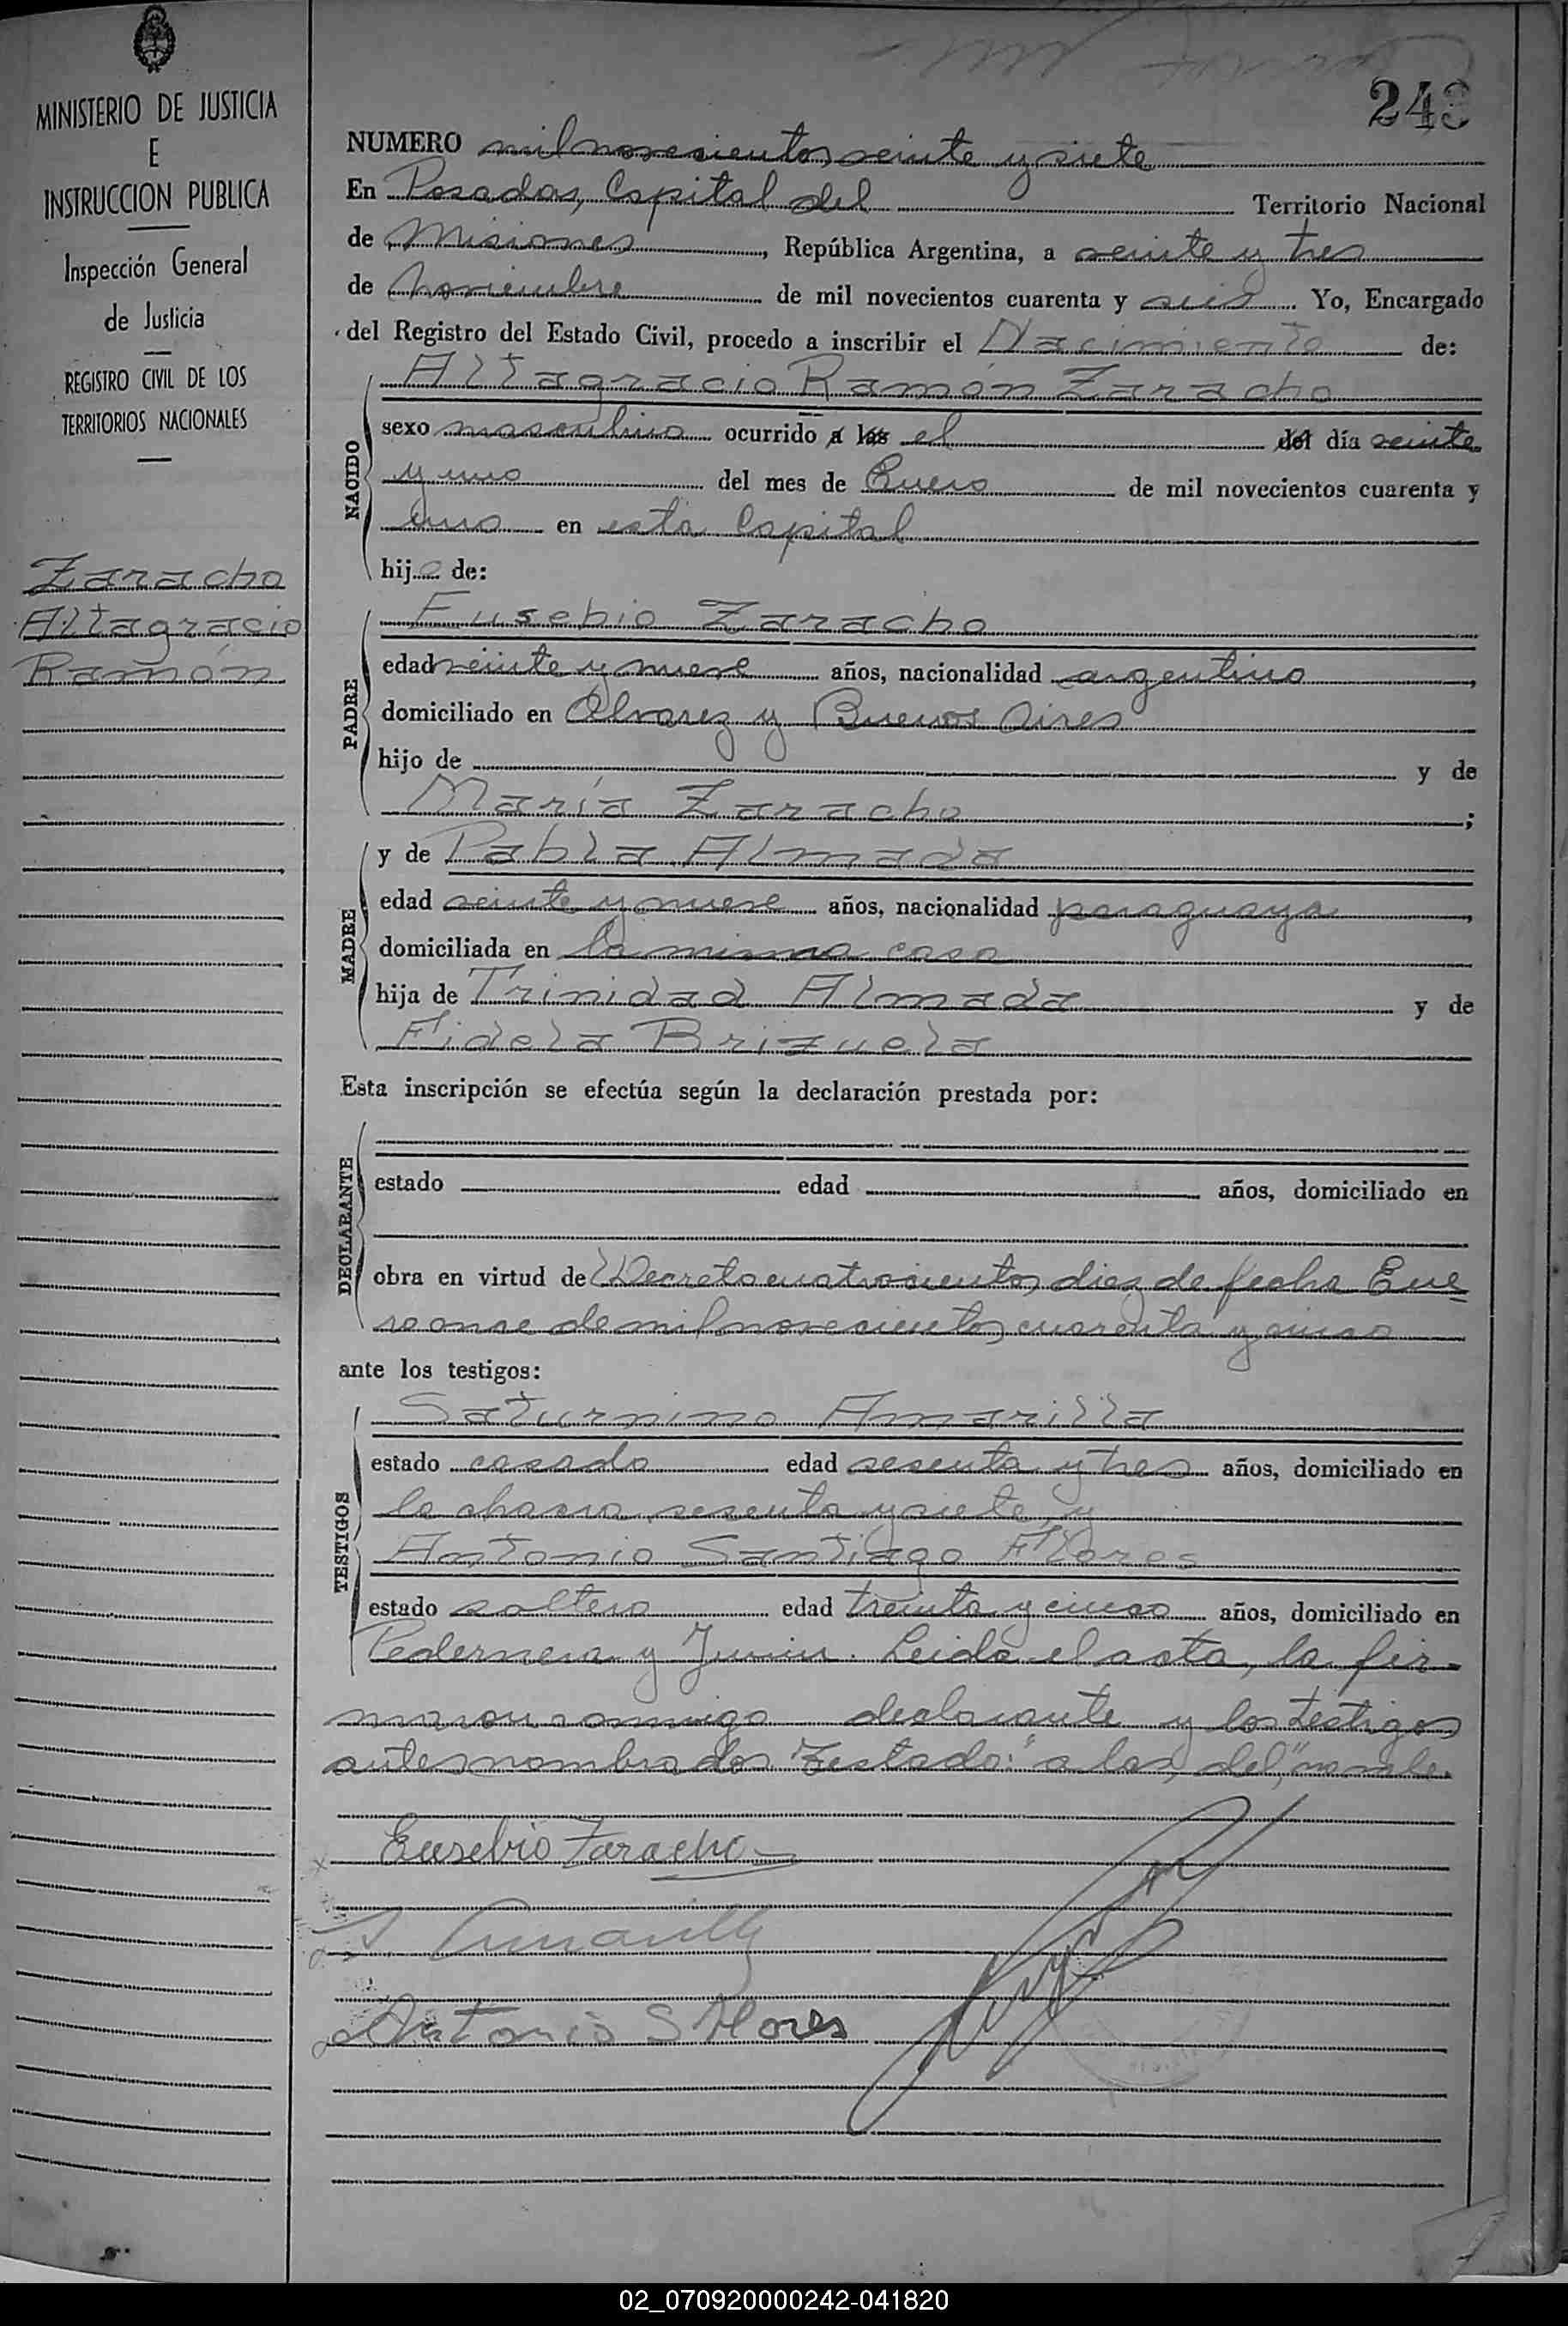 MINISTERIO DE JUSTICIA
E
INSTRUCCION PUBLICA
Inspección General
de Justicia
REGISTRO CIVIL DE LOS
TERRITORIOS NACIONALES
Zaracho
Altagracio
Ramón
243
NUMERO mil novecientos veinte y siete
En Posadas, Capital del Territorio Nacional
de Misiones, República Argentina, a veinte y tres
de Noviembre de mil novecientos cuarenta y seis. Yo, Encargado
del Registro del Estado Civil, procedo a inscribir el Nacimiento de:
NACIDO
Altagracio Ramón Zaracho
sexo masculino ocurrido a las el del día veinte
y uno del mes de Enero de mil novecientos cuarenta y
uno en esta Capital
hijo de:
PADRE
Eusebio Zaracho
edad veinte y nueve años, nacionalidad argentino,
domiciliado en Alvarez y Buenos Aires
hijo de y de
María Zaracho;
MADRE
y de Pabla Almada
edad veinte y nueve años, nacionalidad paraguaya,
domiciliada en la misma casa
hija de Trinidad Almada y de
Fidela Brizuela
Esta inscripción se efectúa según la declaración prestada por:
DECLARANTE
estado edad años, domiciliado en
obra en virtud de Decreto cuatrocientos diez de fecha Ene=
ro once de mil novecientos cuarenta y cinco
ante los testigos:
TESTIGOS
Saturnino Amarilla
estado casado edad sesenta y tres años, domiciliado en
la chacra sesenta y siete, y
Antonio Santiago Flores
estado soltero edad treinta y cinco años, domiciliado en
Pedernera y Junin. Leida el acta, la fir=
maron conmigo declarante y los testigos
antes nombrados. Testado: "a las, del," no vale.
Eusebio Zaracho
S. Amarilla
Antonio S Flores
02_070920000242-041820